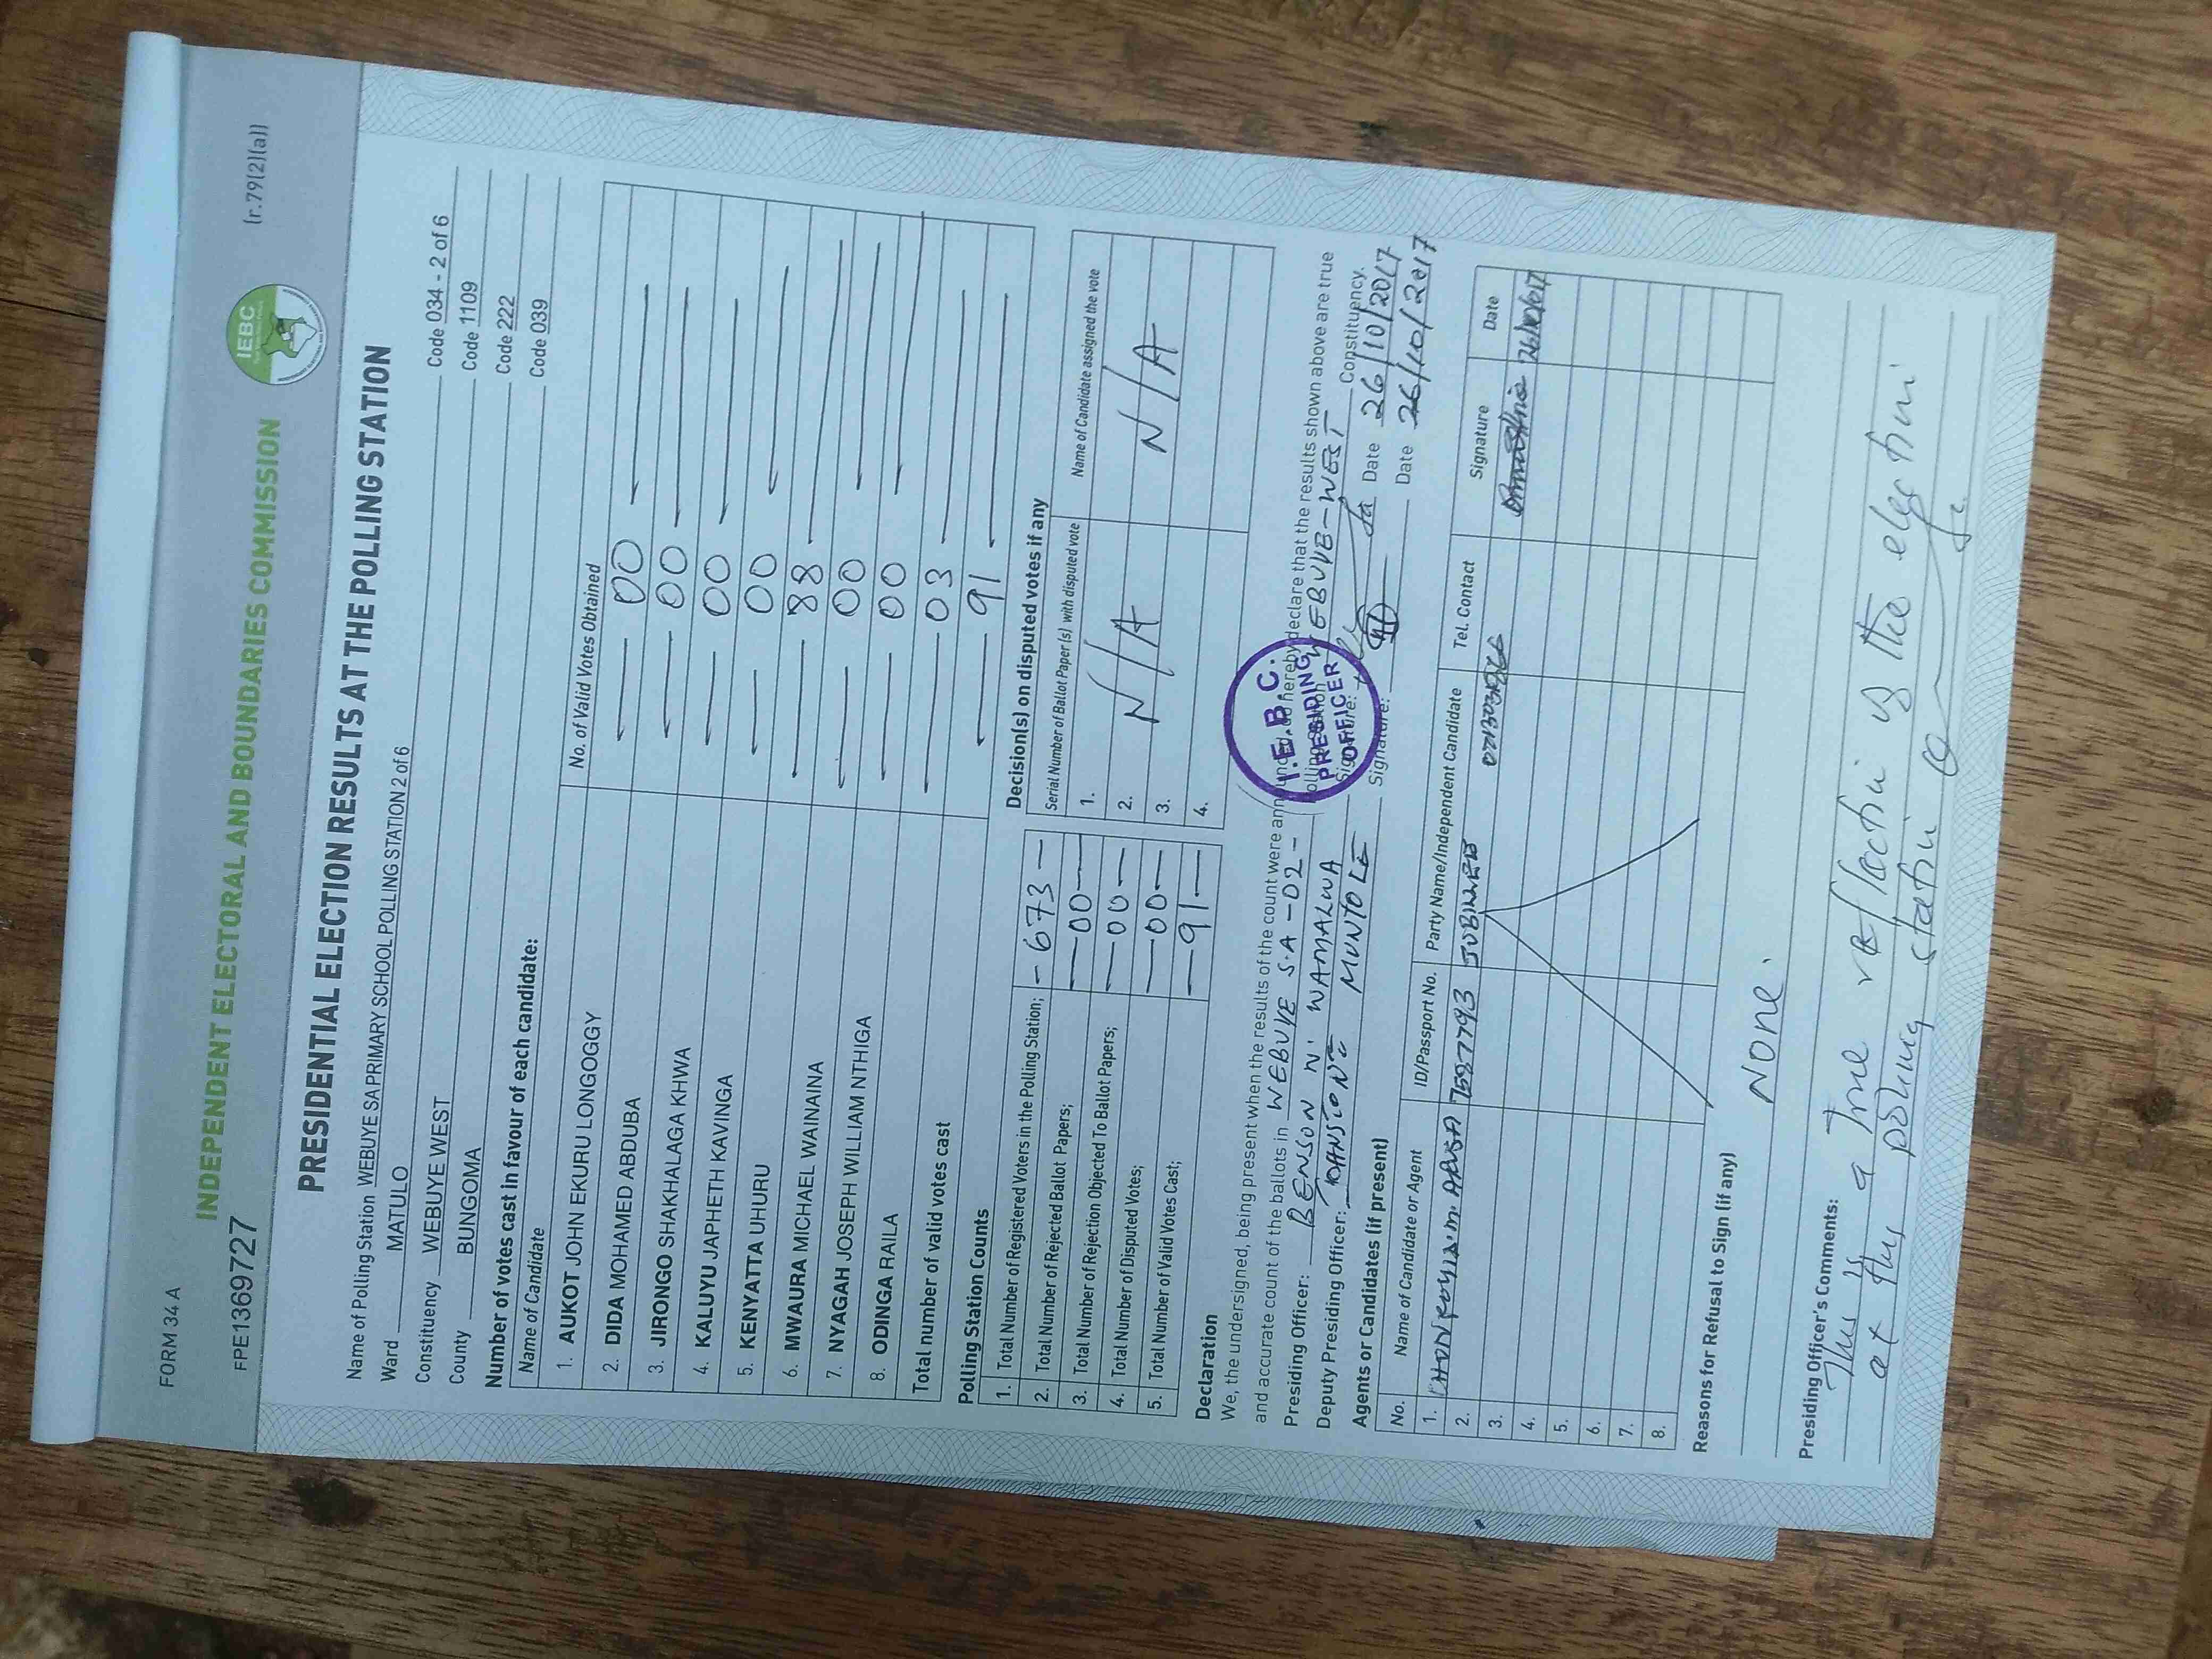 FORM 34 A
INDEPENDENT ELECTORAL AND BOUNDARIES COMMISSION
IEBC
(r.79(2)(a))
FPE1369727
PRESIDENTIAL ELECTION RESULTS AT THE POLLING STATION
Name of Polling Station WEBUYE SA PRIMARY SCHOOL POLLING STATION 2 of 6 Code 034 - 2 of 6
Ward MATULO Code 1109
Constituency WEBUYE WEST Code 222
County BUNGOMA Code 039
Number of votes cast in favour of each candidate:
Name of Candidate No. of Valid Votes Obtained
1. AUKOT JOHN EKURU LONGOGGY 00
2. DIDA MOHAMED ABDUBA 00
3. JIRONGO SHAKHALAGA KHWA 00
4. KALUYU JAPHETH KAVINGA 00
5. KENYATTA UHURU 88
6. MWAURA MICHAEL WAINAINA 00
7. NYAGAH JOSEPH WILLIAM NTHIGA 00
8. ODINGA RAILA 03
Total number of valid votes cast 91
Polling Station Counts
1. Total Number of Registered Voters in the Polling Station; - 673 -
2. Total Number of Rejected Ballot Papers; - 00 -
3. Total Number of Rejection Objected To Ballot Papers; - 00 -
4. Total Number of Disputed Votes; - 00 -
5. Total Number of Valid Votes Cast; - 91 -
Decision(s) on disputed votes if any
Serial Number of Ballot Paper(s) with disputed vote Name of Candidate assigned the vote
1.
2. N/A N/A
3.
4.
Declaration
We, the undersigned, being present when the results of the count were announced, do hereby declare that the results shown above are true
and accurate count of the ballots in WEBUYE S.A - 02 - Polling station WEBUYE - WEST Constituency.
Presiding Officer: BENSON N. WAMALWA Signature: Date 26/10/2017
Deputy Presiding Officer: JOHNSTONE MUNTOLE Signature: Date 26/10/2017
I.E.B.C.
PRESIDING
OFFICER
Agents or Candidates (if present)
No. Name of Candidate or Agent ID/Passport No. Party Name/Independent Candidate Tel. Contact Signature Date
1. JUBILEE 26/10/2017
2.
3.
4.
5.
6.
7.
8.
Reasons for Refusal to Sign (if any)
NONE.
Presiding Officer's Comments:
This is a True reflection of the election
at this polling station